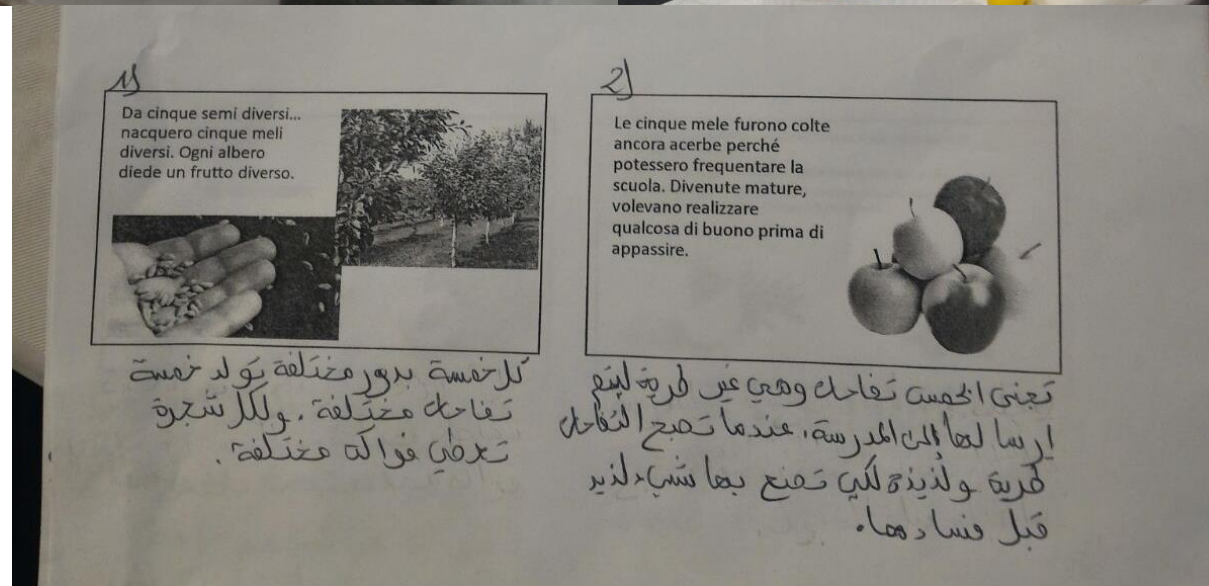 1)
Da cinque semi diversi...
nacquero cinque meli
diversi. Ogni albero
diede un frutto diverso.
كل خمسة بدور مختلفة تولد خمسة
تفاحات مختلفة. ولكل شجرة
تعطي فواكه مختلفة.
2)
Le cinque mele furono colte
ancora acerbe perché
potessero frequentare la
scuola. Divenute mature,
volevano realizzare
qualcosa di buono prima di
appassire.
تجنى الخمس تفاحات وهي غير طرية ليتم
ارسالها إلى المدرسة، عندما تصبح التفاحات
طرية ولذيذة لكي تصنع بها شيء لذيد
قبل فسادها.